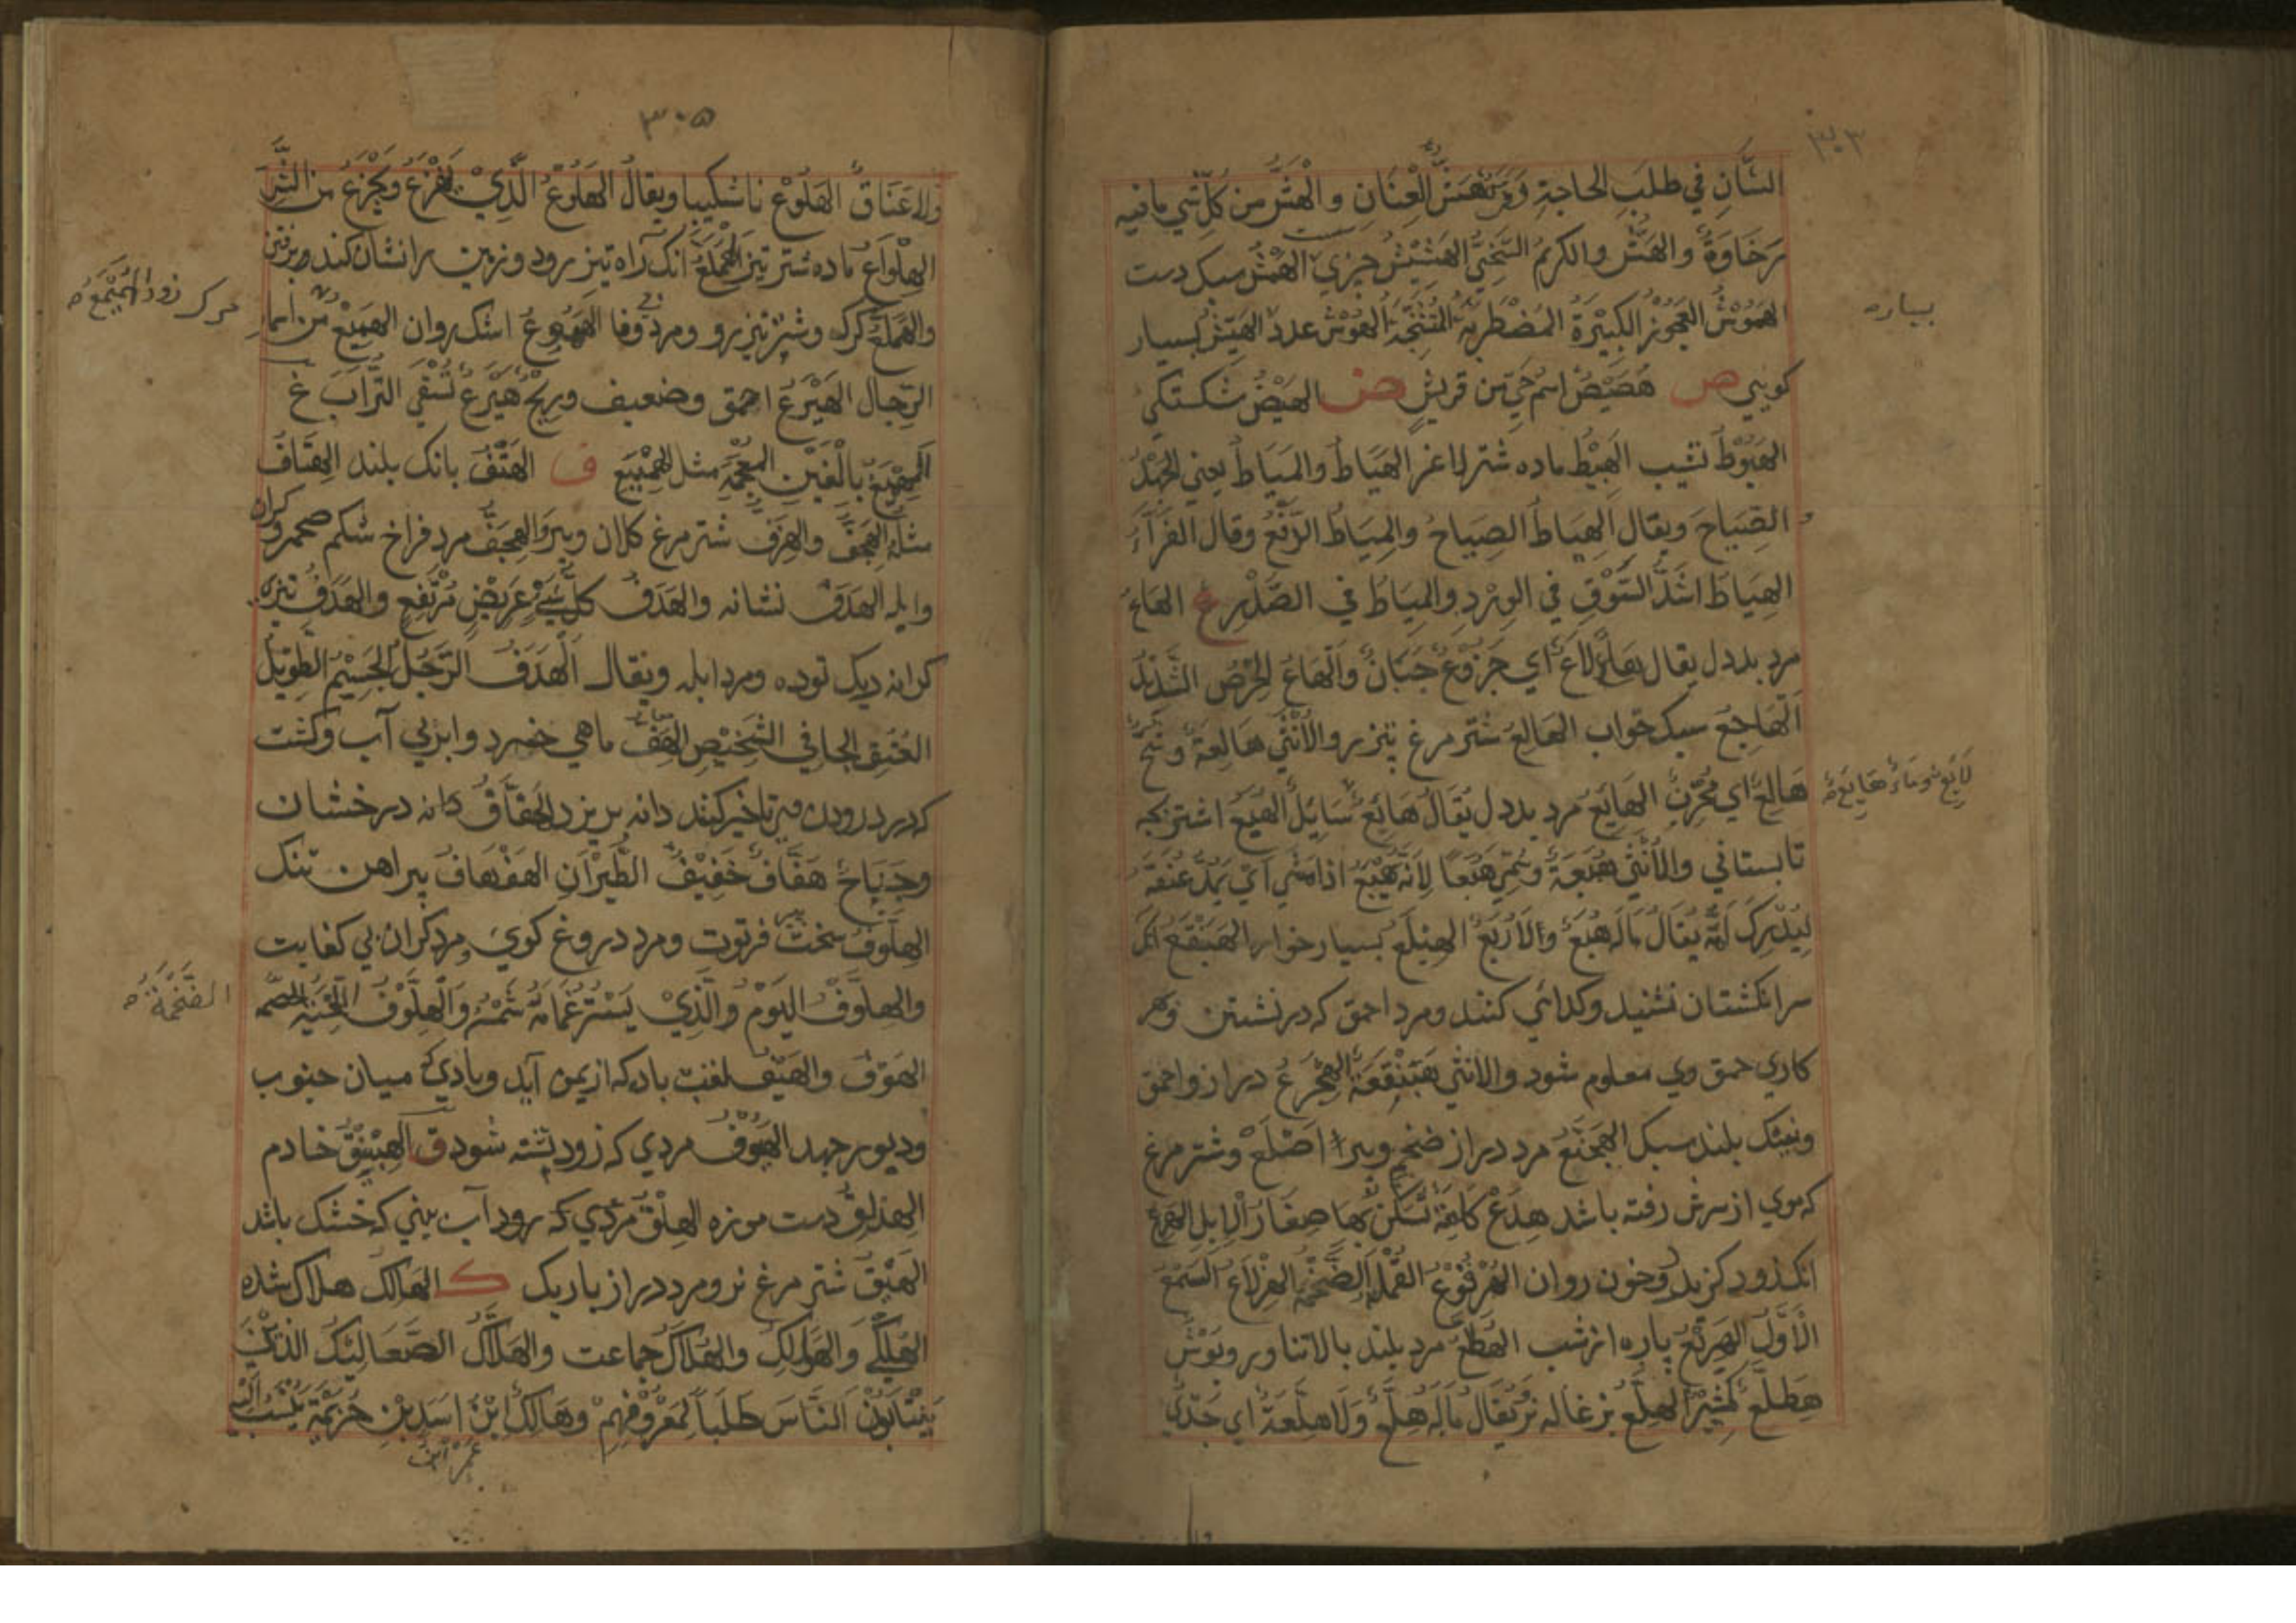 ٣٠٣
الشان في طلب الحاجة وفرس هش العنان والهش من كل شي ما فيه
رخاوة والهش والكريم السخي الهشيش جيزي الهمش سبك دست
الهموش العجوز الكبيرة المضطربة المتشنجة الهوش عدد الهيش بسيار
بسياره
كويي ص هصيص اسم حي من قريش ض الهيض شكستكي
الهبوط نشيب الهبيط ماده شتر لاغر الهياط والمياط يعني الجهد
و الصياح ويقال الهياط الصياح والمياط الدفع وقال الفراء
الهياط اشد السوق في الورد والمياط في الصدر ع الهاع
مرد بددل يقال هاع لاع اي جزوع جبان والهاع الحرص الشديد
الهاجع سبك خواب الهالع شتر مرغ تيز رو والانثى هالعة وشح
هالع اي محزن الهايع مرد بددل يقال هايع سايل الهبع اشتر بچه
تابستاني والانثى هبعة وسمي هبعا لانه يهبع اذا مشى اي يمد عنقه
ليدرك امه يقال ماله هبع والا ربع الهبلع بسيار خوار الهبنقع انكه
سر انكشتان نشيند وكدائي كند ومرد احمق كه در نشستن وهر
كاري حمق وي معلوم شود والانثى هبنقعة الهجرع دراز واحمق
وبيك بلند سبك الهجنع مرد دراز ضخم ويرا اصلع وشتر مرغ
كه موي از سرش رفته باشد هدع كلمة تسكن بها صغار الابل الهرع
انك زود كريد وخون روان الهرنوع القملة الضخمة الهزلاع السمع
الاول الهزيع پاره از شب الهطلع مرد بلند بالا تناور وبوش
هطلع كثير الهلع بزغاله نر يقال ماله هلع ولا هلعة اي جدي
٣٠٥
ولا عناق الهلوع ناشكيبا ويقال الهلوع الذي يفزع ويجزع من الشر
الهلواع ماده شتر تيز الهملع انك راه تيز رود وزمين را نشان كند در رفتن
والهملع كرك وشتر تيز رو ومرد بي وفا الهموع اشك روان الهميع من اسماء
الرجال الهيرع احمق وضعيف وريح هيرع تسفي التراب غ
الهميغ بالغين المعجمة مثل الهميع ف الهتف بانك بلند الهتاف
مثله الهجف والهزف شتر مرغ كلان وپير والهجف مرد فراخ شكم
وابله الهدف نشانه والهدف كل شيء عريض مرتفع والهدف نيزه
كرانه ديك توده ومرد ابله ويقال الهدف الرجل الجسيم الطويل
العنق الجافي الشخيص الهف ماهي خرد وابر بي آب وكشت
كه در درودن وي تاخير كنند دانه بريزد الهفاف دانه درخشان
وجناح هفاف خفيف الطيران الهفهاف پيراهن تنك
الهلوف سخت پير فرتوت ومرد دروغ كوي ومرد كران بي كفايت
والهلوف اليوم والذي يستر غمامه شمسه والهلوف اللحية الضخمة
الضخمة
الهوف والهيف لغتان باد كه از يمن آيد وبادي كه ميان جنوب
ودبور جهد الهيوف مردي كه زود تشنه شود ق الهبنيق خادم
الهذلق دست موزه الهلق مردي كه رود آب بيني كه خشك باشد
الهيق شتر مرغ نر ومرد دراز باريك ك الهالك هلاك شده
الهلكى والهوالك والهلاك جماعت والهلاك الصعاليك الذين
ينتابون الناس طلبا لمعروفهم وهالك ابن اسد بن خزيمة ينسب اليه
عمرو بن